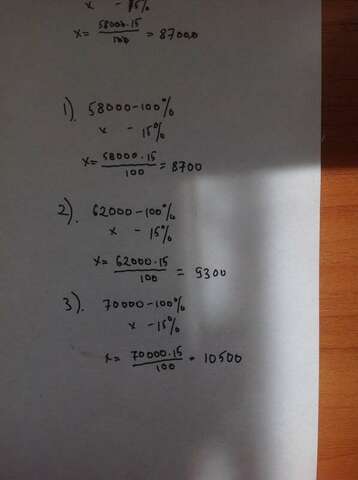 x - 15%
x = 58000·15/100 = 87000
1). 58000 - 100%
x - 15%
x = 58000·15/100 = 8700
2). 62000 - 100%
x - 15%
x = 62000·15/100 = 9300
3). 70000 - 100%
x - 15%
x = 70000·15/100 = 10500